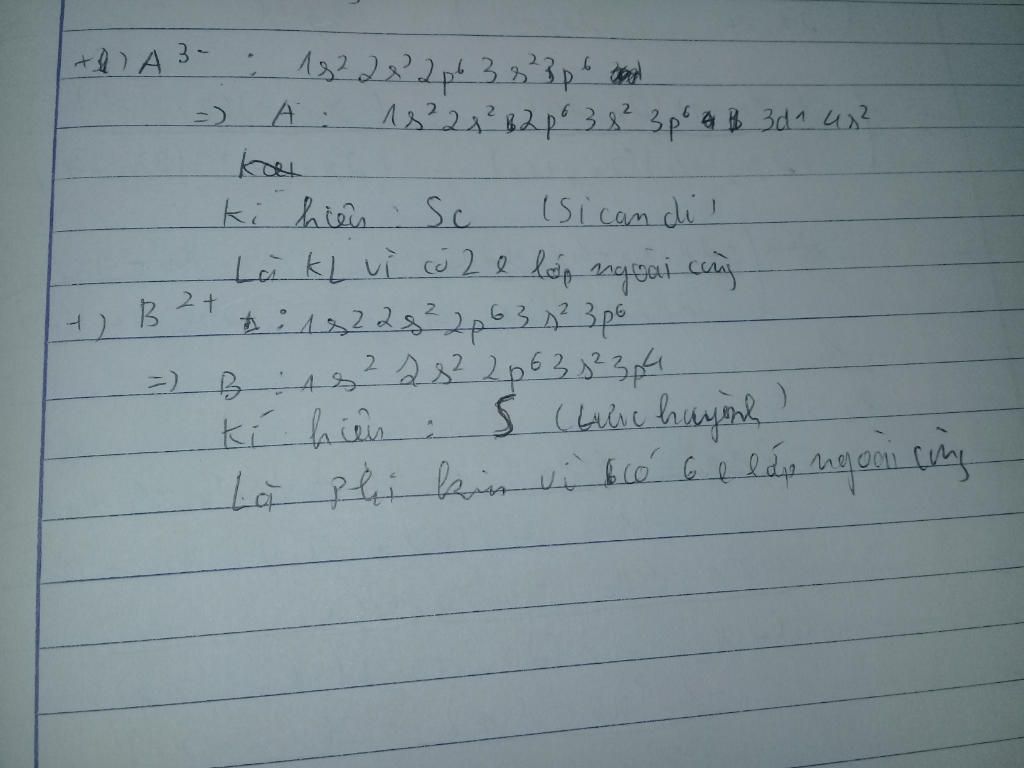 +) A³⁻ : 1s² 2s² 2p⁶ 3s² 3p⁶
=> A : 1s² 2s² 2p⁶ 3s² 3p⁶ 3d¹ 4s²
Kí hiệu : Sc (Sicandi)
Là KL vì có 2 e lớp ngoài cùng
+) B²⁺ : 1s² 2s² 2p⁶ 3s² 3p⁶
=> B : 1s² 2s² 2p⁶ 3s² 3p⁴
Kí hiệu : S (Lưu huỳnh)
Là phi kim vì có 6 e lớp ngoài cùng